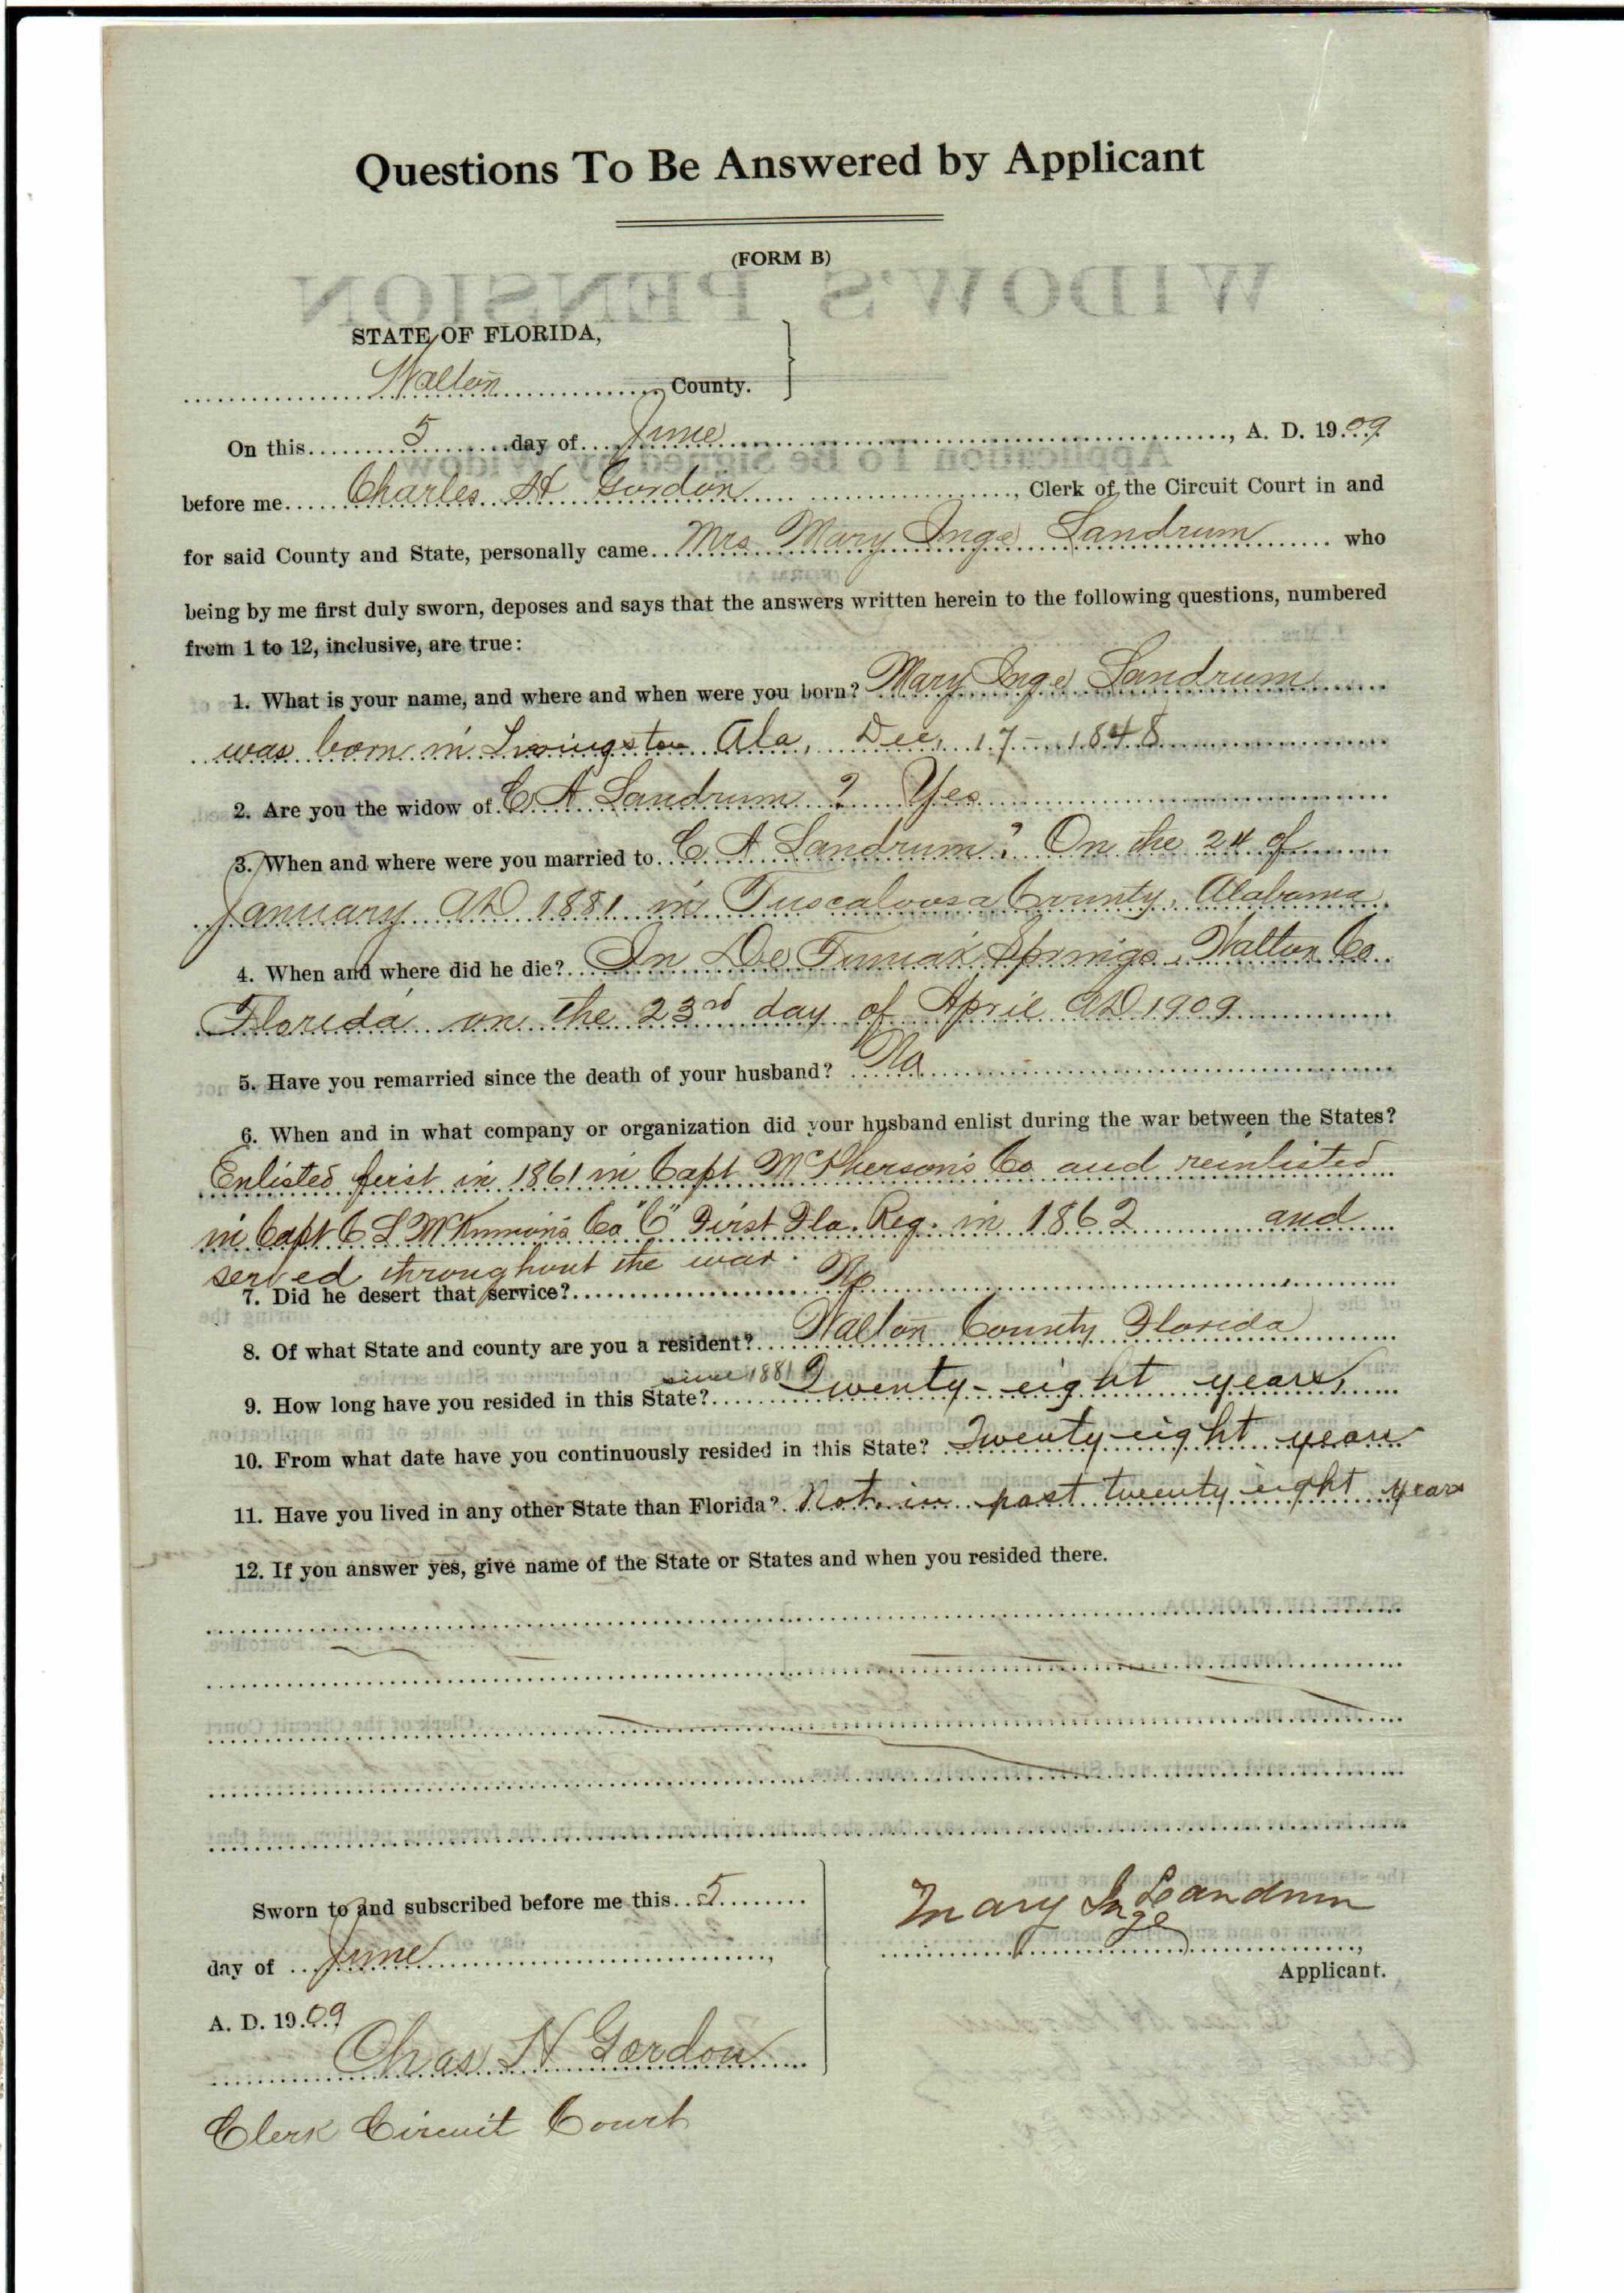 Questions To Be Answered by Applicant
(FORM B)
WIDOW'S PENSION
STATE OF FLORIDA,
Walton County.
On this 5 day of June, A. D. 1909
before me Charles H Gordon, Clerk of the Circuit Court in and
for said County and State, personally came Mrs Mary Inge Landrum who
being by me first duly sworn, deposes and says that the answers written herein to the following questions, numbered
from 1 to 12, inclusive, are true:
1. What is your name, and where and when were you born? Mary Inge Landrum
was born in Livingston Ala, Dec, 17 - 1848
2. Are you the widow of C A Landrum ? Yes
3. When and where were you married to C A Landrum? On the 24 of
January AD 1881 in Tuscaloosa County, Alabama
4. When and where did he die? In De Funiak Springs, Walton Co
Florida on the 23rd day of April AD 1909
5. Have you remarried since the death of your husband? No
6. When and in what company or organization did your husband enlist during the war between the States?
Enlisted first in 1861 in Capt McPherson's Co and reinlisted
in Capt C L McKinnon's Co "C" First Fla. Reg. in 1862 and
served throughout the war.
7. Did he desert that service? No
8. Of what State and county are you a resident? Walton County Florida
since 1881
9. How long have you resided in this State? Twenty-eight years,
10. From what date have you continuously resided in this State? Twenty-eight years
11. Have you lived in any other State than Florida? Not in past twenty eight years
12. If you answer yes, give name of the State or States and when you resided there.
Sworn to and subscribed before me this 5
day of June,
A. D. 1909
Chas H Gordon
Clerk Circuit Court
Mary Inge Landrum
Applicant.